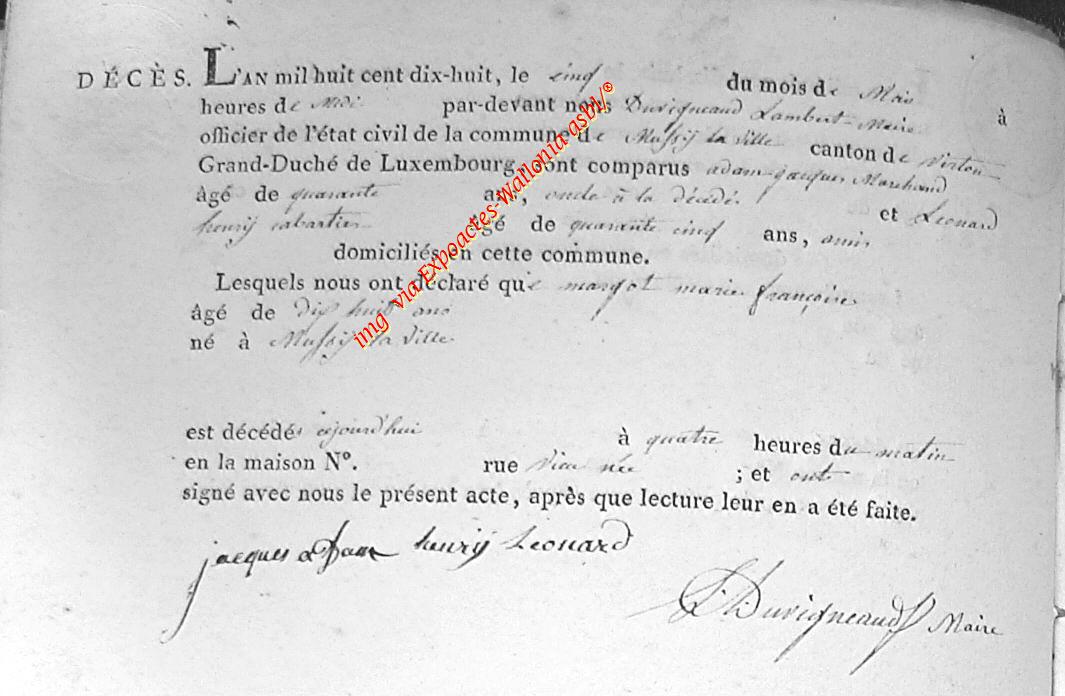 DÉCÈS. L'AN mil huit cent dix-huit, le cinq du mois de Mais à
heures de Midi par-devant nous Duvigneaud Lambert Maire
officier de l'état civil de la commune de Mussij la ville canton de Virton
Grand-Duché de Luxembourg, sont comparus adam jacques Marchand
âgé de quarante ans, oncle à la décédé et Léonard
henrij cabartier âgé de quarante cinq ans, amis
domiciliés en cette commune.
Lesquels nous ont déclaré que margot marie françoise
âgé de dix huit ans
né à Mussij la ville
est décédé ajourd'hui à quatre heures du matin
en la maison N°. rue ; et ont
signé avec nous le présent acte, après que lecture leur en a été faite.
jacques adam henrij Léonard
L. Duvigneaud Maire
img via Expoactes-Wallonia asbl/©